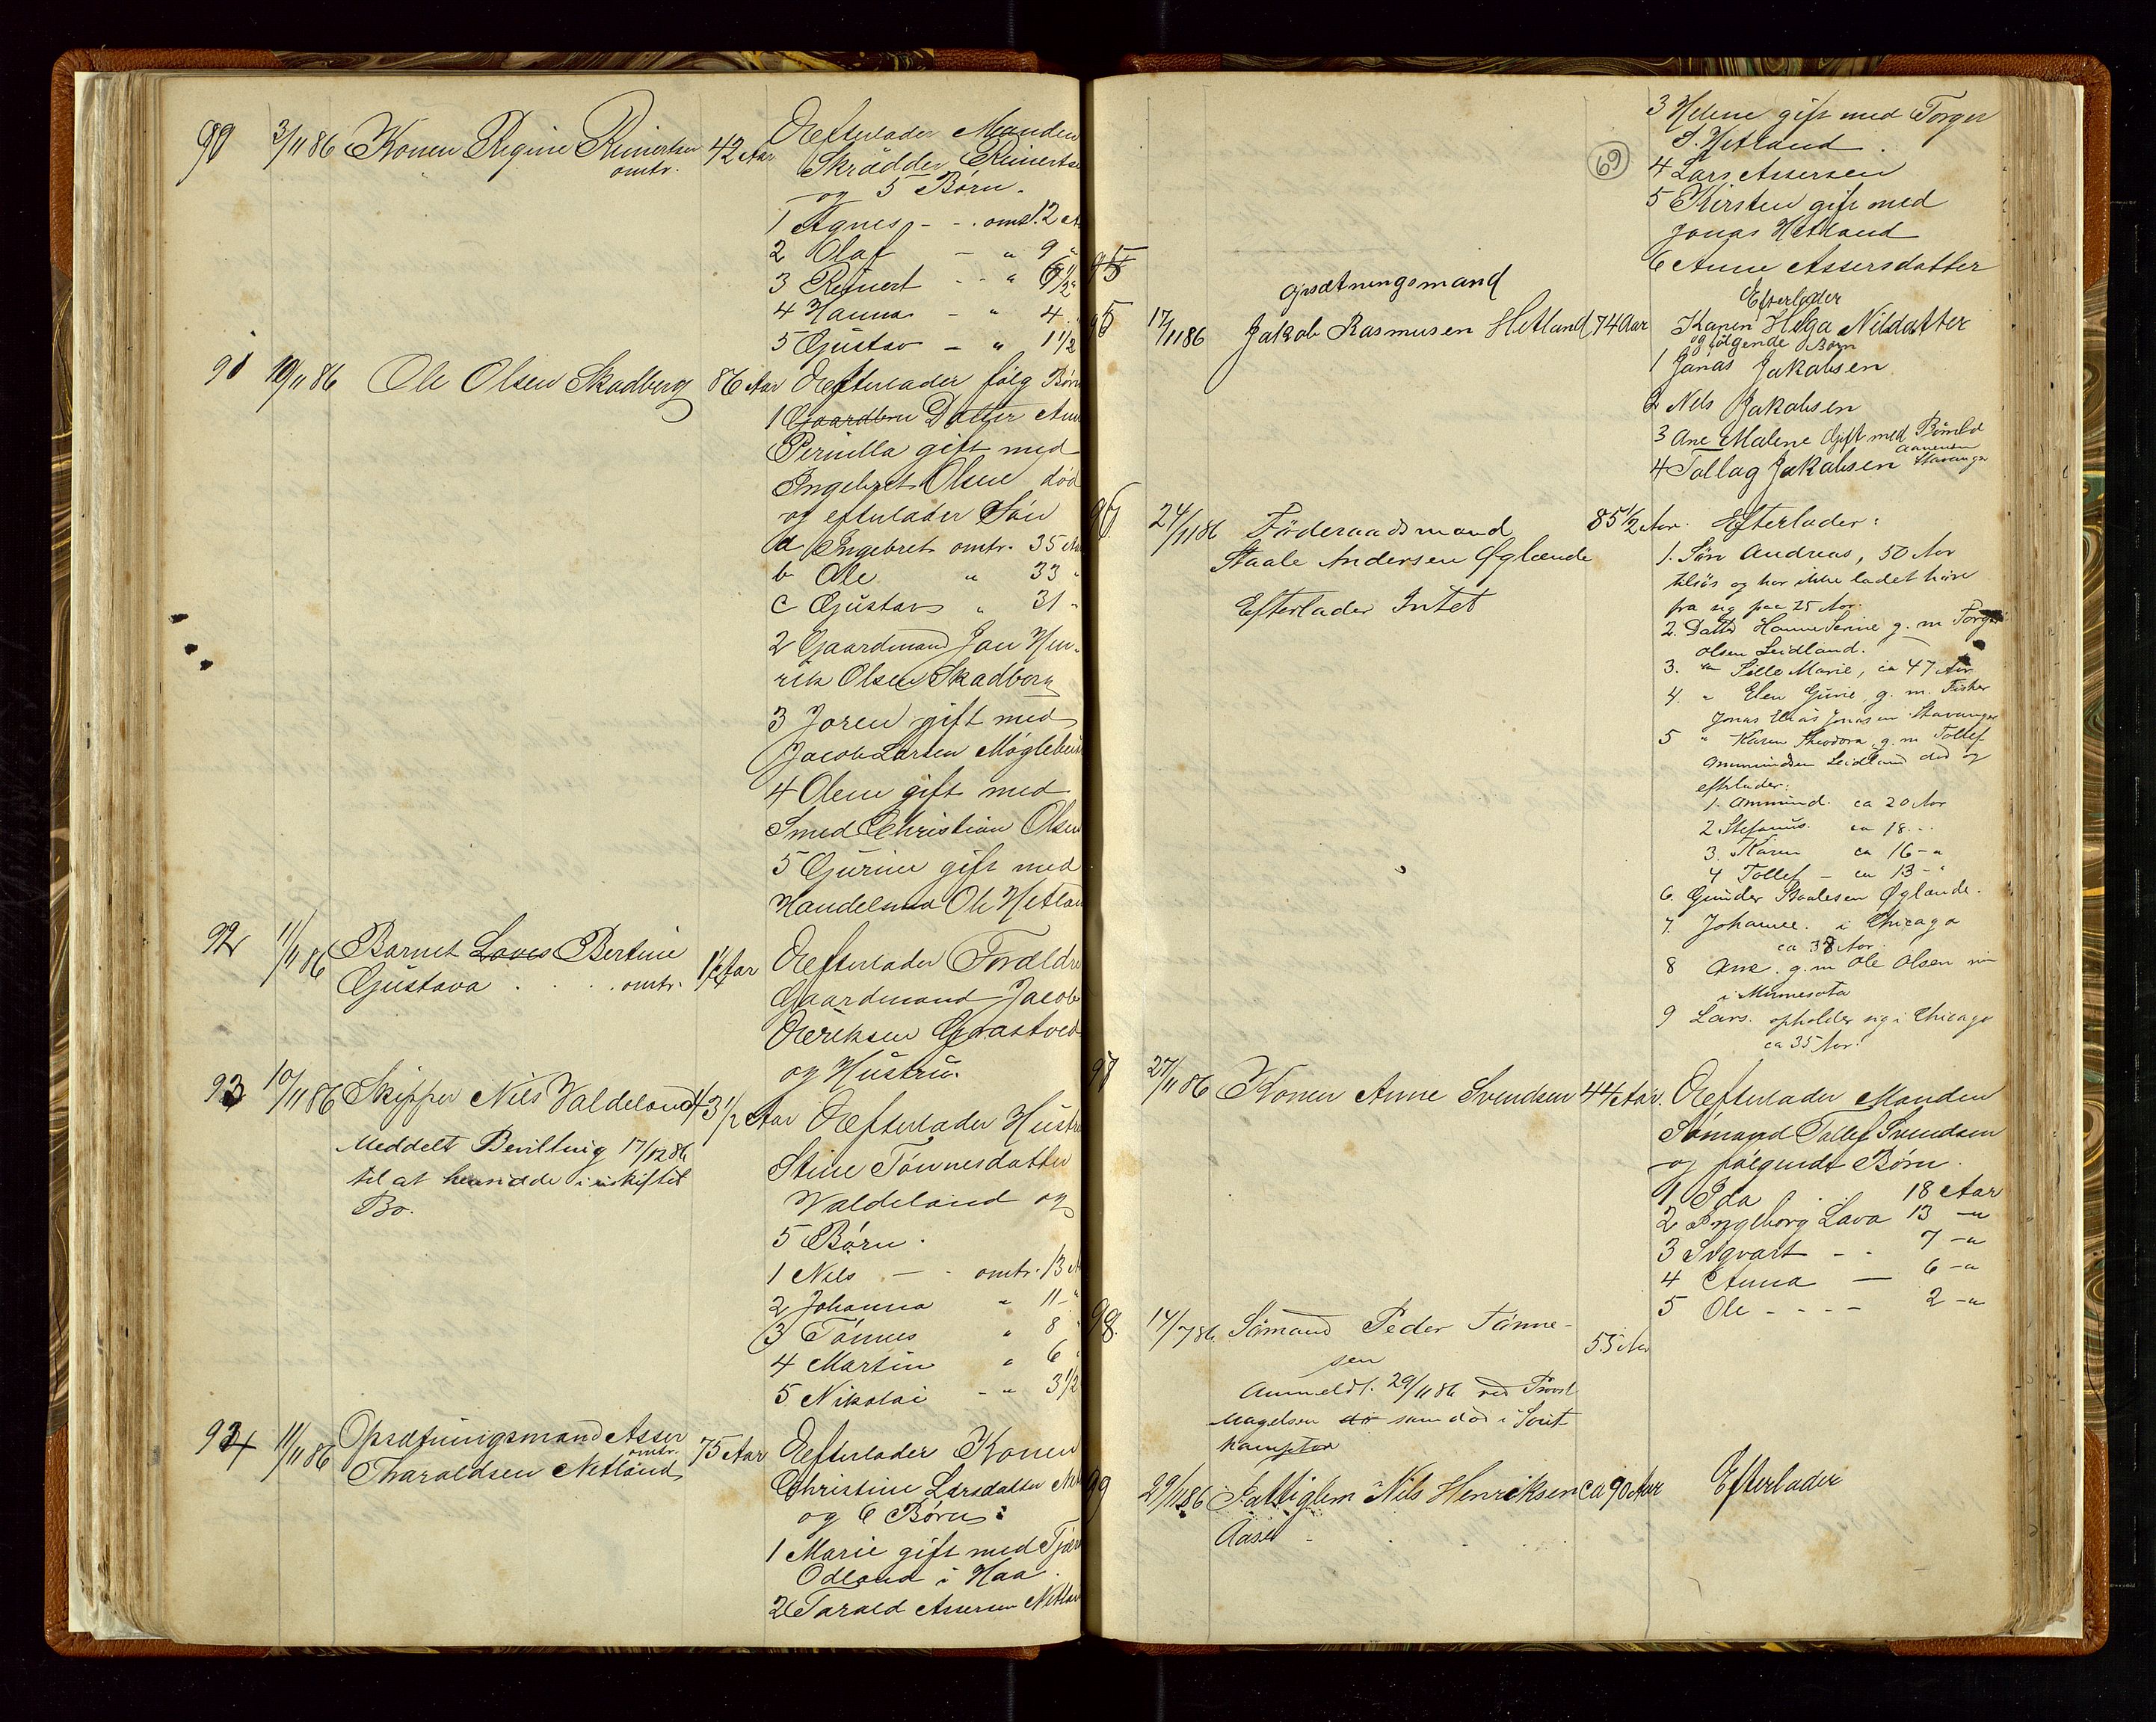 90 3/11 86 Konen Regine Reinertsen omtr. 42 Aar Efterlader Manden
Skrædder Reinertse
og 5 Børn.
1 Agnes - - omtr. 12 A
2 Olaf - " 9 "
3 Reinert - - " 6 1/2 "
4 Hanna - " 4 "
5 Gustav - " 1 1/2
91 10/11 86 Ole Olsen Skadberg 86 Aar Efterlader følg Børn
1 Datter Ann
Pernilla gift med
Ingebret Olsen død
og efterlader Søn
a Ingebret omtr. 35 Aa
b Ole " 33 "
c Gustav " 31 "
2 Gaardmand Jan Hen-
rik Olsen Skadberg
3 Joren gift med
Jacob Larsen Møglebu
4 Olene gift med
Smed Christian Olsen
5 Gurine gift med
Handelsma Ole Hetlan
92 11/11 86 Barnet Laves Bertine
Gustava . . . omtr. 1 1/4 Aar Efterlader Forældre
Gaardmand Jacob
Eriksen Graastved
og Hustru.
93 10/11 86 Skipper Nils Valdeland 43 1/2 Aar Efterlader Hustru
Meddelt Bevilling 17/12 86
til at hensidde i uskiftet
Bo.
Stine Tønnesdatter
Valdeland og
5 Børn.
1 Nils — - omtr. 13 A
2 Johanna " 11 - "
3 Tønnes " 8 "
4 Martin " 6 "
5 Nikolai - " 3 1/2
94 11/11 86 Opsætningsmand Asser
Tharaldsen Netland omtr. 75 Aar Efterlader Konen
Christine Larsdatter Net
og 6 Børn:
1 Marie gift med Tjær
Odland i Haa.
2 Tarald Assersen Netlan
69
3 Helene gift med Torger
S. Hetland.
4 Lars Assersen
5 Kirsten gift med
Jonas Hetland
6 Anne Assersdatter
95
Opsætningsmand
95 17/11 86 Jakob Rasmusen Hetland 74 Aar Efterlader
Konen Helga Nilsdatter
og følgende Børn
1 Jonas Jakobsen
2 Nels Jakobsen
3 Ane Malene Gift med
4 Tollag Jakobsen Stavanger
96 24/11 86 Føderaadsmand
Staale Andersen Øglænde
Efterlader Intet
85 1/2 Aar. Efterlader:
1. Søn Andreas, 50 Aar
tilsøs og har ikke ladet høre
fra sig paa 25 Aar.
2. Datter Hanne Serine g. m Torger
Olsen Leidland.
3. " Sille Marie, ca 47 Aar
4. " Elen Gurie g. m. Fisker
Jonas Elias Jonasen Stavanger
5 " Karen Theodora g. m Tollef
Ammundsen Leidland død og
efterlader:
1. Ammund. ca 20 Aar
2 Stefanus. ca 18 - -
3. Karen ca 16 - "
4 Tollef - ca 13 - "
6. Gunder Staalesen Øglænde.
7. Johanne. i Chicago
ca 38 Aar.
8 Ane. g. m Ole Olsen
i Minnesota
9 Lars. opholder sig i Chicago
ca 35 Aar.
97 27/11 86 Konen Anne Svendsen 44 Aar. Efterlader Manden
Sømand Tollef Svendsen
og følgende Børn.
1 Ida . . 18 Aar
2 Ingeborg Lava 13 - "
3 Sigvart - - 7 - "
4 Anna — 6 - "
5 Ole - - - - 2 - "
98. 14/7 86. Sømand Peder Tønne-
sen 55 Aar
Anmeldt. 29/11 86 ved Provst
Magelsen som død i Sout
hampton
99 29/11 86 Fattiglem Nils Henriksen ca 90 Aar Efterlader
Aase -